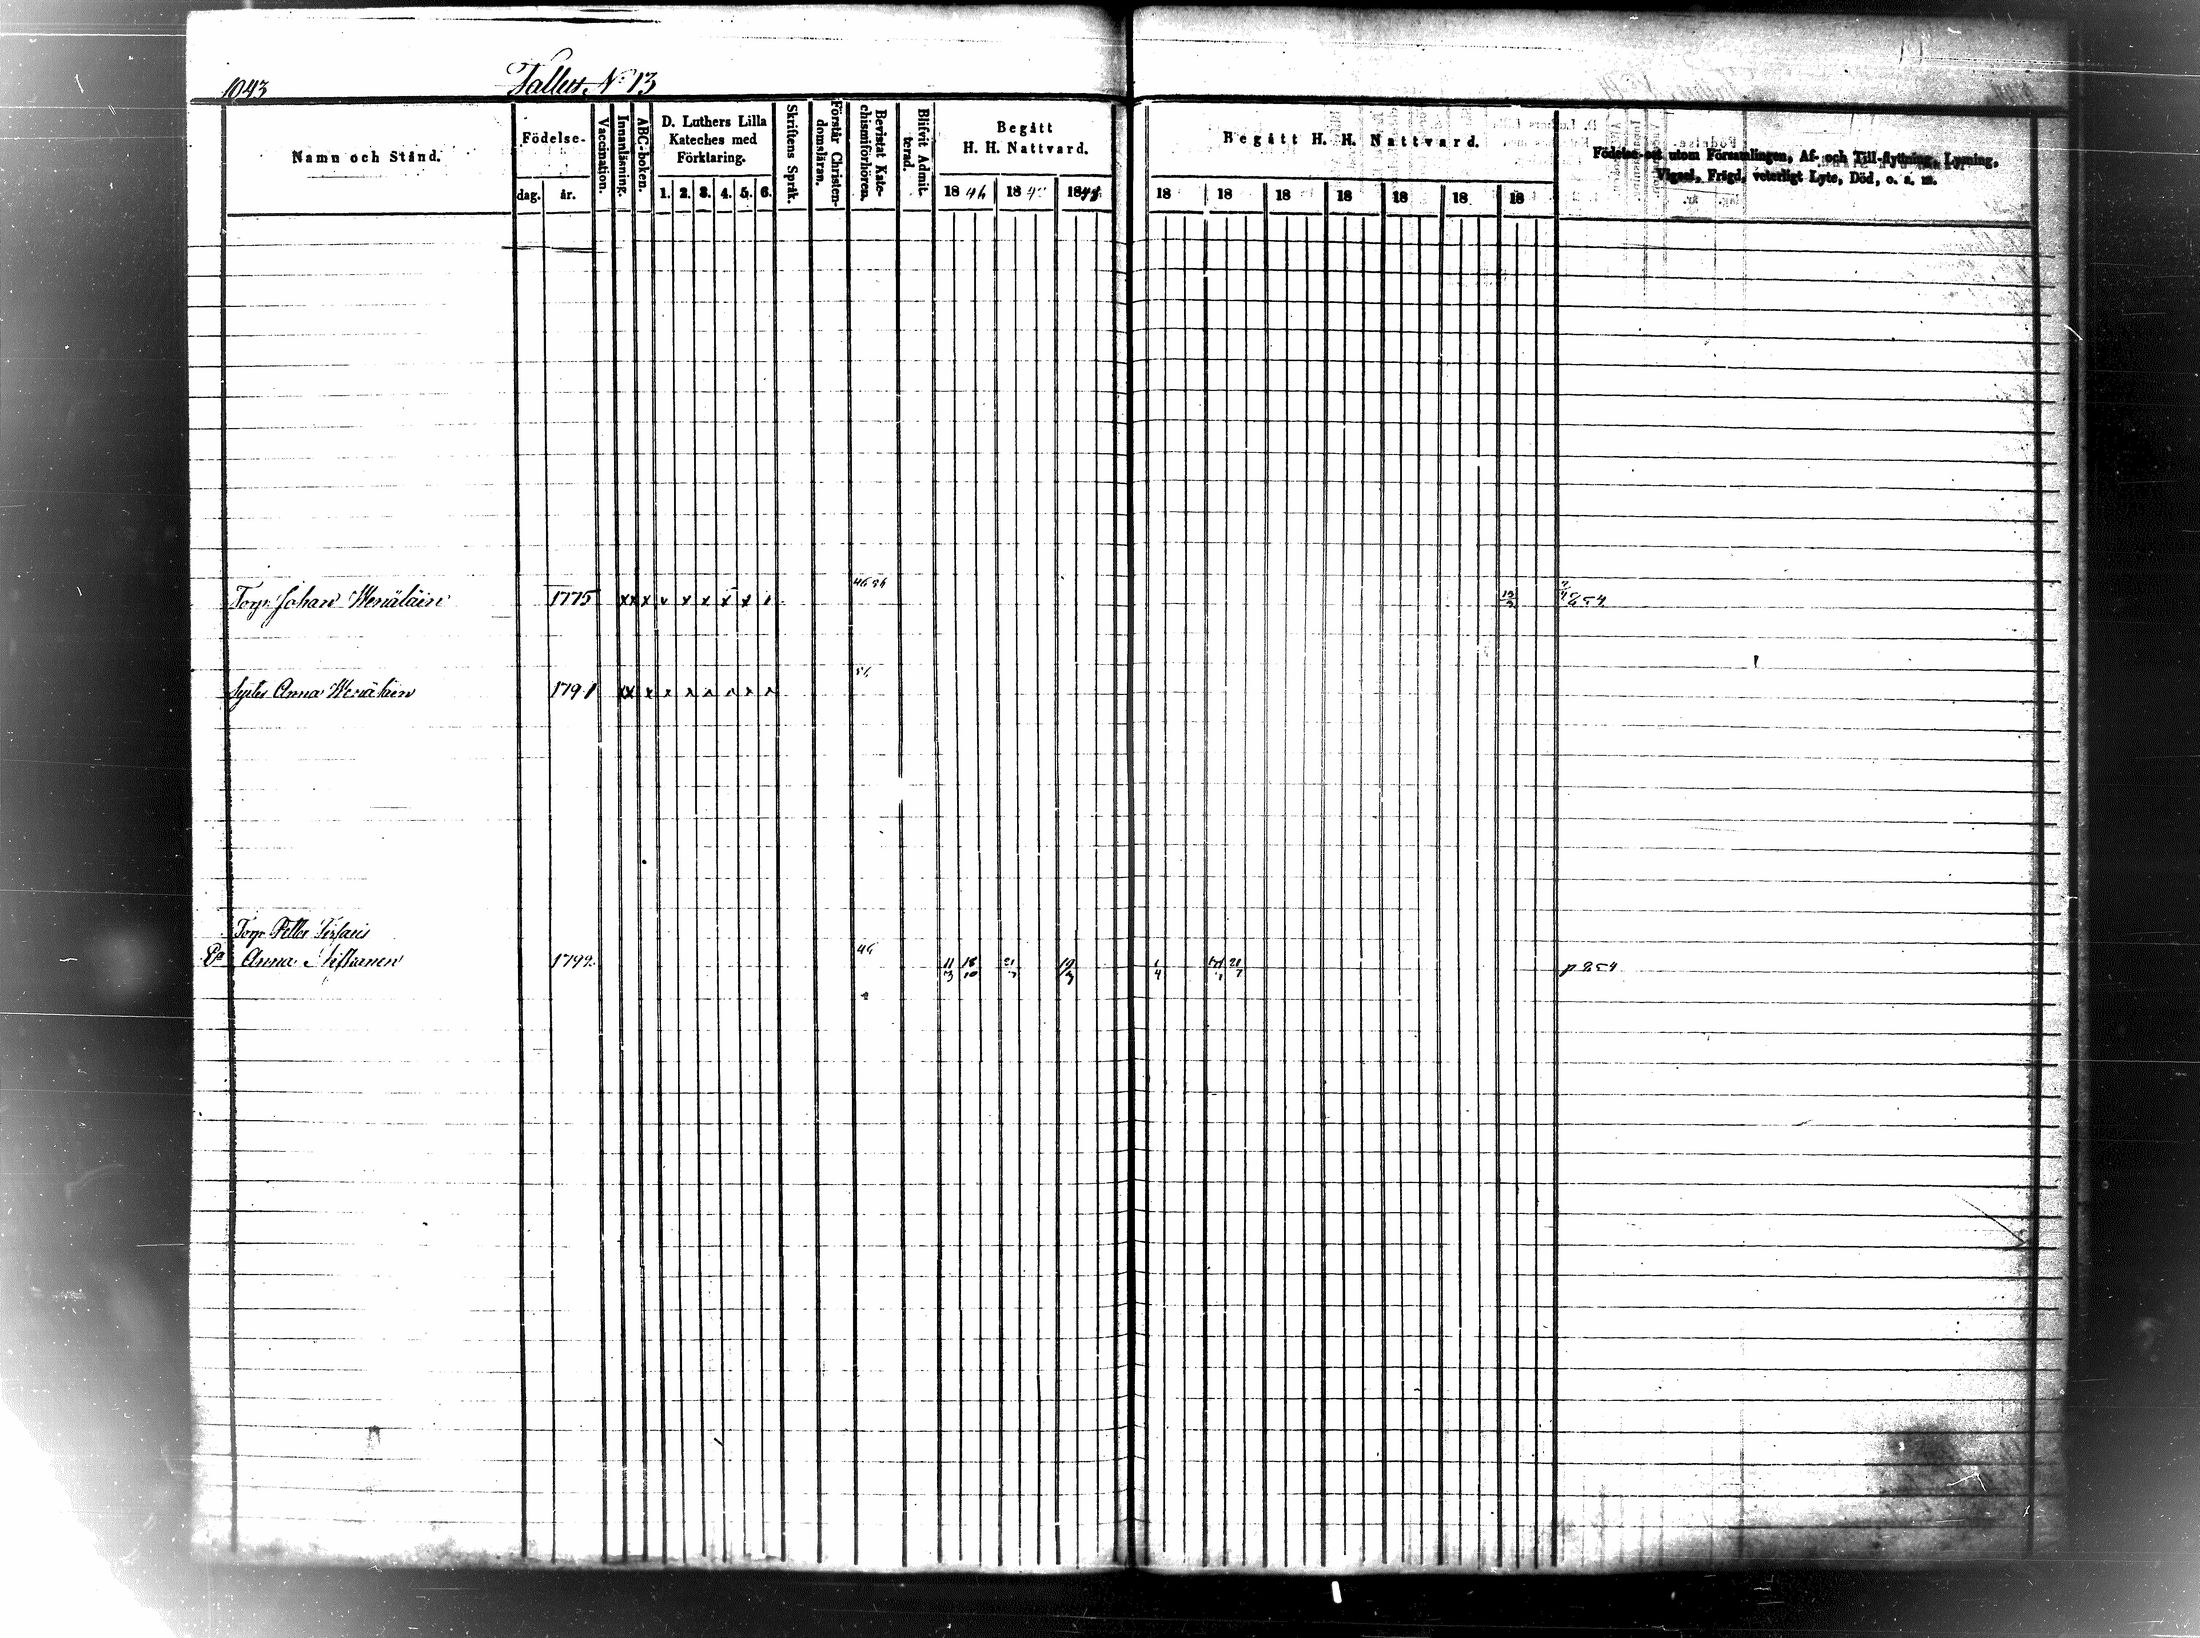 1043 Tallus, No 13
Namn och Stånd.
Födelse-
dag. år.
Vaccination.
Innanläsning.
ABC-boken.
D. Luthers Lilla
Kateches med
Förklaring.
1. 2. 3. 4. 5. 6.
Skriftens Språk.
Förstår Christen-
domsläran.
Bevistat Kate-
chismiförhören.
Blifvit Admit-
terad.
Begått
H. H. Nattvard.
18 46 18 4 1848
Begått H. H. Nattvard.
18 18 18 18 18 18 18
Födelse-ort utom Församlingen, Af- och Till-flyttning, Lysning,
Vigsel, Frägd, veterligt Lyte, Död, o. s. v.
Torp. Johan Wenäläin 1775 x x x x x x x x
Syster Anna Wenäläin 1791 x x x x x x x x
Torp. Petter
Anna 1792 46 11/3 18/10 21/7 19/3 1/4 21/7 p 254